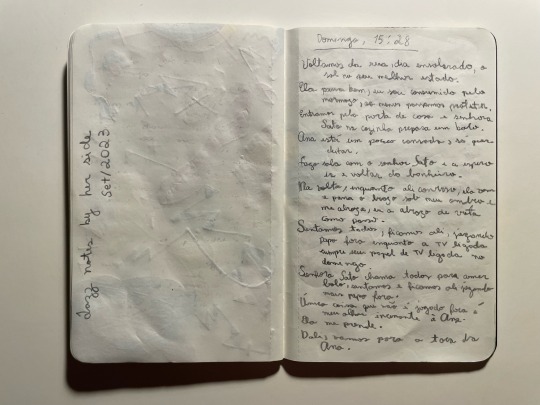 Jazz notes by her side
Set/2023
Domingo, 15:28
Voltamos da rua, dia ensolarado, o
sol no seu melhor estado.
Ela passa bem, eu sou consumido pelo
mormaço, ao menos possamos
Entramos pela porta de casa e senhora
Sato na cozinha prepara um bolo.
Ana está um pouco cansada, só quer
deitar.
Faço sala com o senhor Sato e a espero
ir e voltar do banheiro.
Na volta, enquanto ali converso, ela vem
e passa o braço sob meu ombro e
me abraça, eu a abraço de volta
como posso.
Sentamos todos, ficamos ali, jogando
papo fora enquanto a TV ligada
cumpre seu papel de TV ligada no
domingo.
Senhora Sato chama todos para comer
bolo, sentamos e ficamos ali jogando
mais papo fora.
Única coisa que não é jogado fora é
meu olhar à Ana.
Ela me prende.
Dali, vamos para a toca da
Ana.